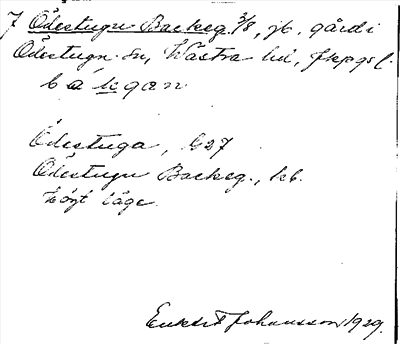 7 Ödestugu Backeg. 3/8, jb. gård i
Ödestugu sn, Västra hd, Jkpgs l.
bákgan
Ödestuga, G27
Ödestugu Backeg., kb.
högt läge
Johansson 1929.